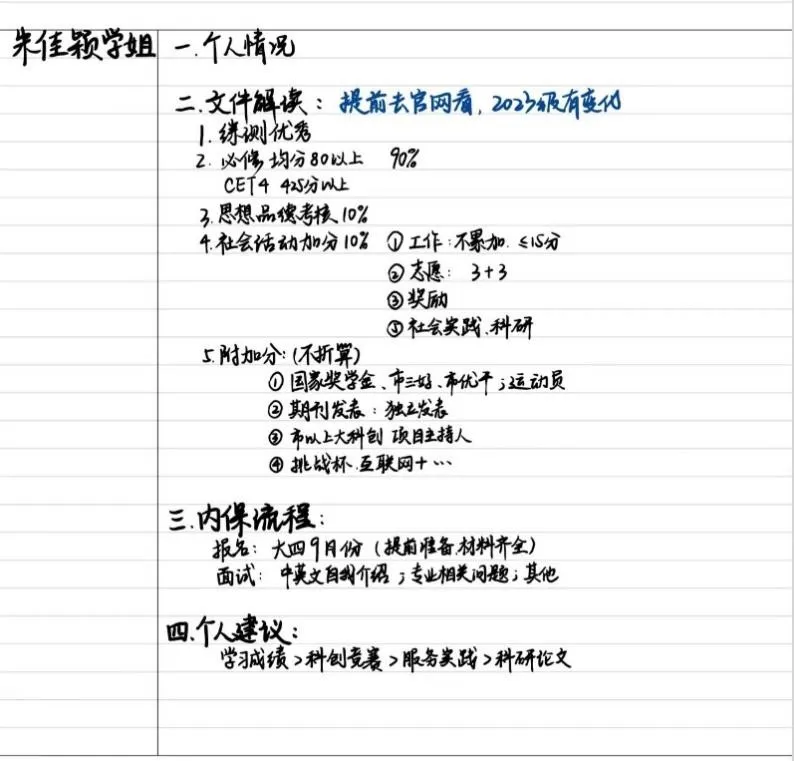 朱佳颖学姐
一.个人情况
二.文件解读：提前去官网看，2023级有变化
1. 综测优秀
2. 必修均分80以上 90%
CET4 425分以上
3.思想品德考核10%
4.社会活动加分10% ①工作：不累加.≤15分
②志愿：3+3
③奖励
⑤社会实践.科研
5.附加分：(不折算)
①国家奖学金、市三好、市优干；运动员
②期刊发表：独立发表
③市以上大科创 项目主持人
④挑战杯.互联网+…
三.内保流程：
报名：大四9月份（提前准备.材料齐全）
面试：中英文自我介绍；专业相关问题；其他
四.个人建议：
学习成绩>科创竞赛>服务实践>科研论文